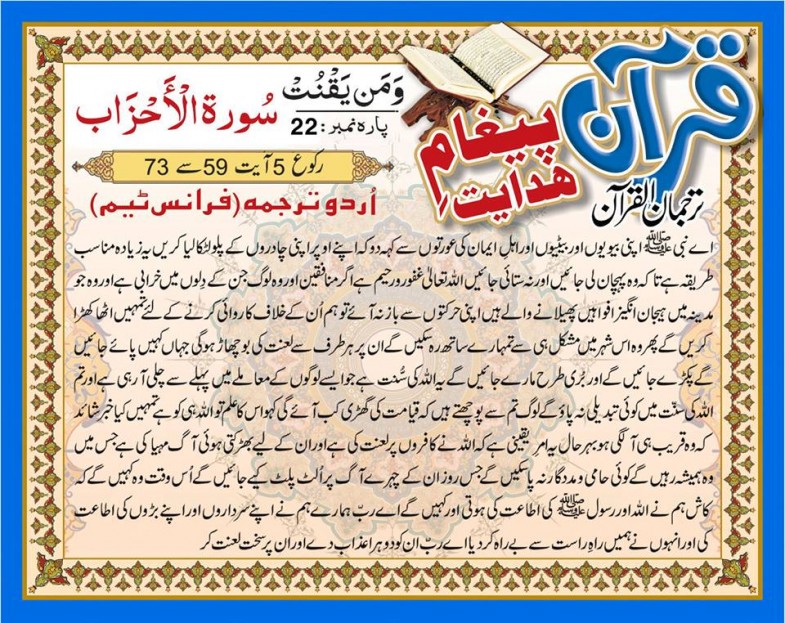 قرآن
پیغامِ
ھدایت
ترجمان القرآن
وَمَن يَقْنُتْ
پارہ نمبر: 22
سُورۃ الْأَحْزَاب
رکوع 5 آیت 59 سے 73
اُردو ترجمه (فرانس ٹیم)
اے نبی ﷺ اپنی بیویوں اور بیٹیوں اور اہلِ ایمان کی عورتوں سے کہہ دو کہ اپنے اوپر اپنی چادروں کے پلو لٹکا لیا کریں یہ زیادہ مناسب
طریقہ ہے تا کہ وہ پہچان لی جائیں اور نہ ستائی جائیں اللہ تعالیٰ غفور و رحیم ہے اگر منافقین اور وہ لوگ جن کے دِلوں میں خرابی ہے اور وہ جو
مدینہ میں ہیجان انگیز افواہیں پھیلانے والے ہیں اپنی حرکتوں سے باز نہ آئے تو ہم اُن کے خلاف کاروائی کرنے کے لئے تمہیں اٹھا کھڑا
کریں گے پھر وہ اس شہر میں مشکل ہی سے تمہارے ساتھ رہ سکیں گے ان پر ہر طرف سے لعنت کی بوچھاڑ ہوگی جہاں کہیں پائے جائیں
گے پکڑے جائیں گے اور بُری طرح مارے جائیں گے یہ اللہ کی سُنّت ہے جو ایسے لوگوں کے معاملے میں پہلے سے چلی آ رہی ہے اور تم
اللہ کی سنّت میں کوئی تبدیلی نہ پاؤ گے لوگ تم سے پوچھتے ہیں کہ قیامت کی گھڑی کب آئے گی کہو اس کا علم تو اللہ ہی کو ہے تمہیں کیا خبر شائد
کہ وہ قریب ہی آ لگی ہو بہر حال یہ امر یقینی ہے کہ اللہ نے کافروں پر لعنت کی ہے اور ان کے لیے بھڑکتی ہوئی آگ مہیا کی ہے جس میں
وہ ہمیشہ رہیں گے کوئی حامی و مددگار نہ پا سکیں گے جس روز ان کے چہرے آگ پر اُلٹ پلٹ کیے جائیں گے اُس وقت وہ کہیں گے کہ
کاش ہم نے اللہ اور رسول ﷺ کی اطاعت کی ہوتی اور کہیں گے اے ربّ ہمارے ہم نے اپنے سرداروں اور اپنے بڑوں کی اطاعت
کی اور انہوں نے ہمیں راہِ راست سے بے راہ کر دیا اے ربّ ان کو دوہرا عذاب دے اور ان پر سخت لعنت کر